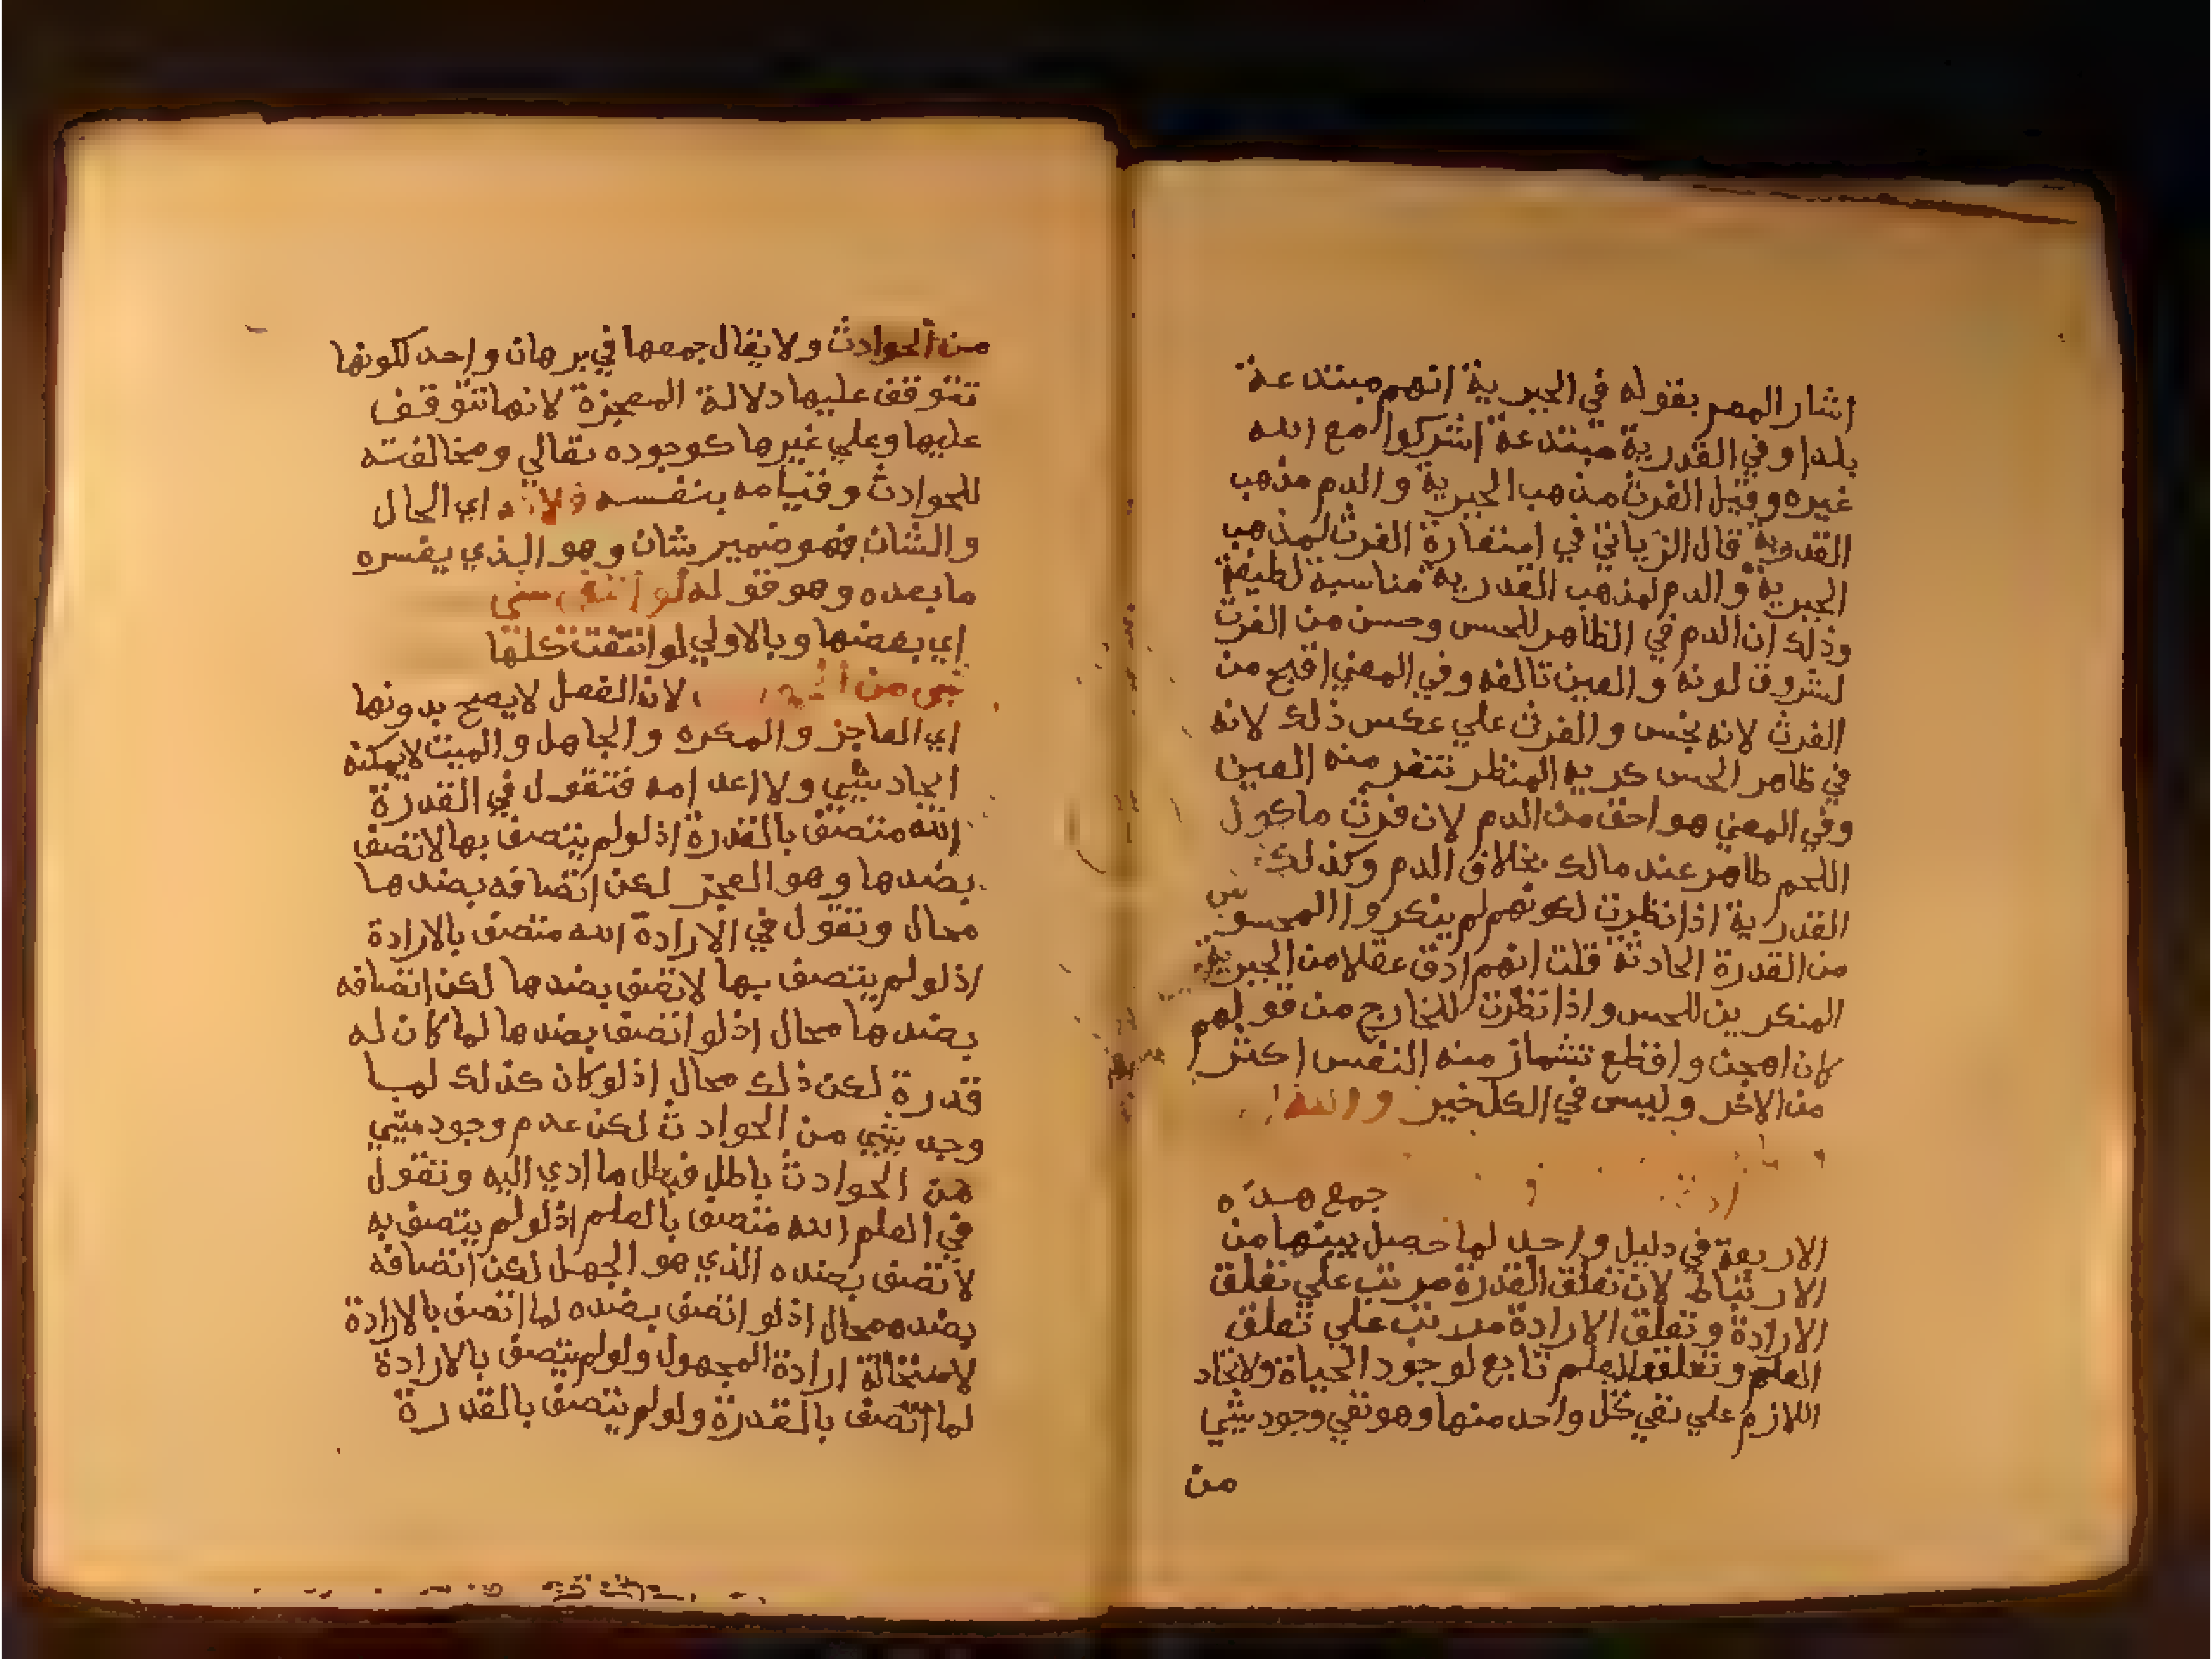 اشار المصر بقوله في الجبرية انهم مبتدعة
بلدا وفي القدرية مبتدعة اشركوا مع الله
غيره وقيل الفرث مذهب الجبرية والدم مذهب
القدرية قال الزياتي في استعارة الفرث لمذهب
الجبرية والدم لمذهب القدرية مناسبة لطيفة
وذلك ان الدم في الظاهر للحس وحسن من الفرث
لشروق لونه والعين تالفه وفي المعني اقبح من
الفرث لانه نجس والفرث علي عكس ذلك لانه
في ظاهر الحس كريه المنظر تنفر منه العين
وفي المعني هو اخف من الدم لان فرث ماكول
اللحم طاهر عند مالك بخلاف الدم وكذلك
القدرية اذا نظرت لكونهم لم ينكروا المحسوس
من القدرة الحادثة قلت انهم ادق عقلا من الجبرية
المنكرين للحس واذا نظرت للخارج من قولهم
كان اهجن وافظع تشماز منه النفس اكثر
من الاخر وليس في الكل خير والله
جمع هذه
الاربعة في دليل واحد لما حصل بينها من
الارتباط لان تعلق القدرة مرتب علي تعلق
الارادة وتعلق الارادة مرتب علي تعلق
العلم وتعلق العلم تابع لوجود الحياة ولاتحاد
اللازم علي نفي كل واحد منها وهو نفي وجود شي
من
من الحوادث ولا يقال جمعها في برهان واحد لكونها
تتوقف عليها دلالة المعجزة لانها تتوقف
عليها وعلي غيرها كوجوده تعالي ومخالفته
للحوادث وقيامه بنفسه فلانه اي الحال
والشان فهو ضمير شان وهو الذي يفسره
ما بعده وهو قوله لو انتفي شي
اي بعضها وبالاولي لو انتفت كلها
شي من لان الفعل لا يصح بدونها
اي العاجز والمكره والجاهل والميت لا يمكنه
ايجاد شي ولا اعدامه فتقول في القدرة
الله متصف بالقدرة اذ لو لم يتصف بها لاتصف
بضدها وهو العجز لكن اتصافه بضدها
محال وتقول في الارادة الله متصف بالارادة
اذ لو لم يتصف بها لاتصف بضدها لكن اتصافه
بضدها محال اذ لو اتصف بضدها لما كان له
قدرة لكن ذلك محال اذ لو كان كذلك لما
وجد شي من الحوادث لكن عدم وجود شي
من الحوادث باطل فبطل ما ادي اليه وتقول
في العلم الله متصف بالعلم اذ لو لم يتصف به
لاتصف بضده الذي هو الجهل لكن اتصافه
بضده محال اذ لو اتصف بضده لما اتصف بالارادة
لاستحالة ارادة المجهول ولو لم يتصف بالارادة
لما اتصف بالقدرة ولو لم يتصف بالقدرة